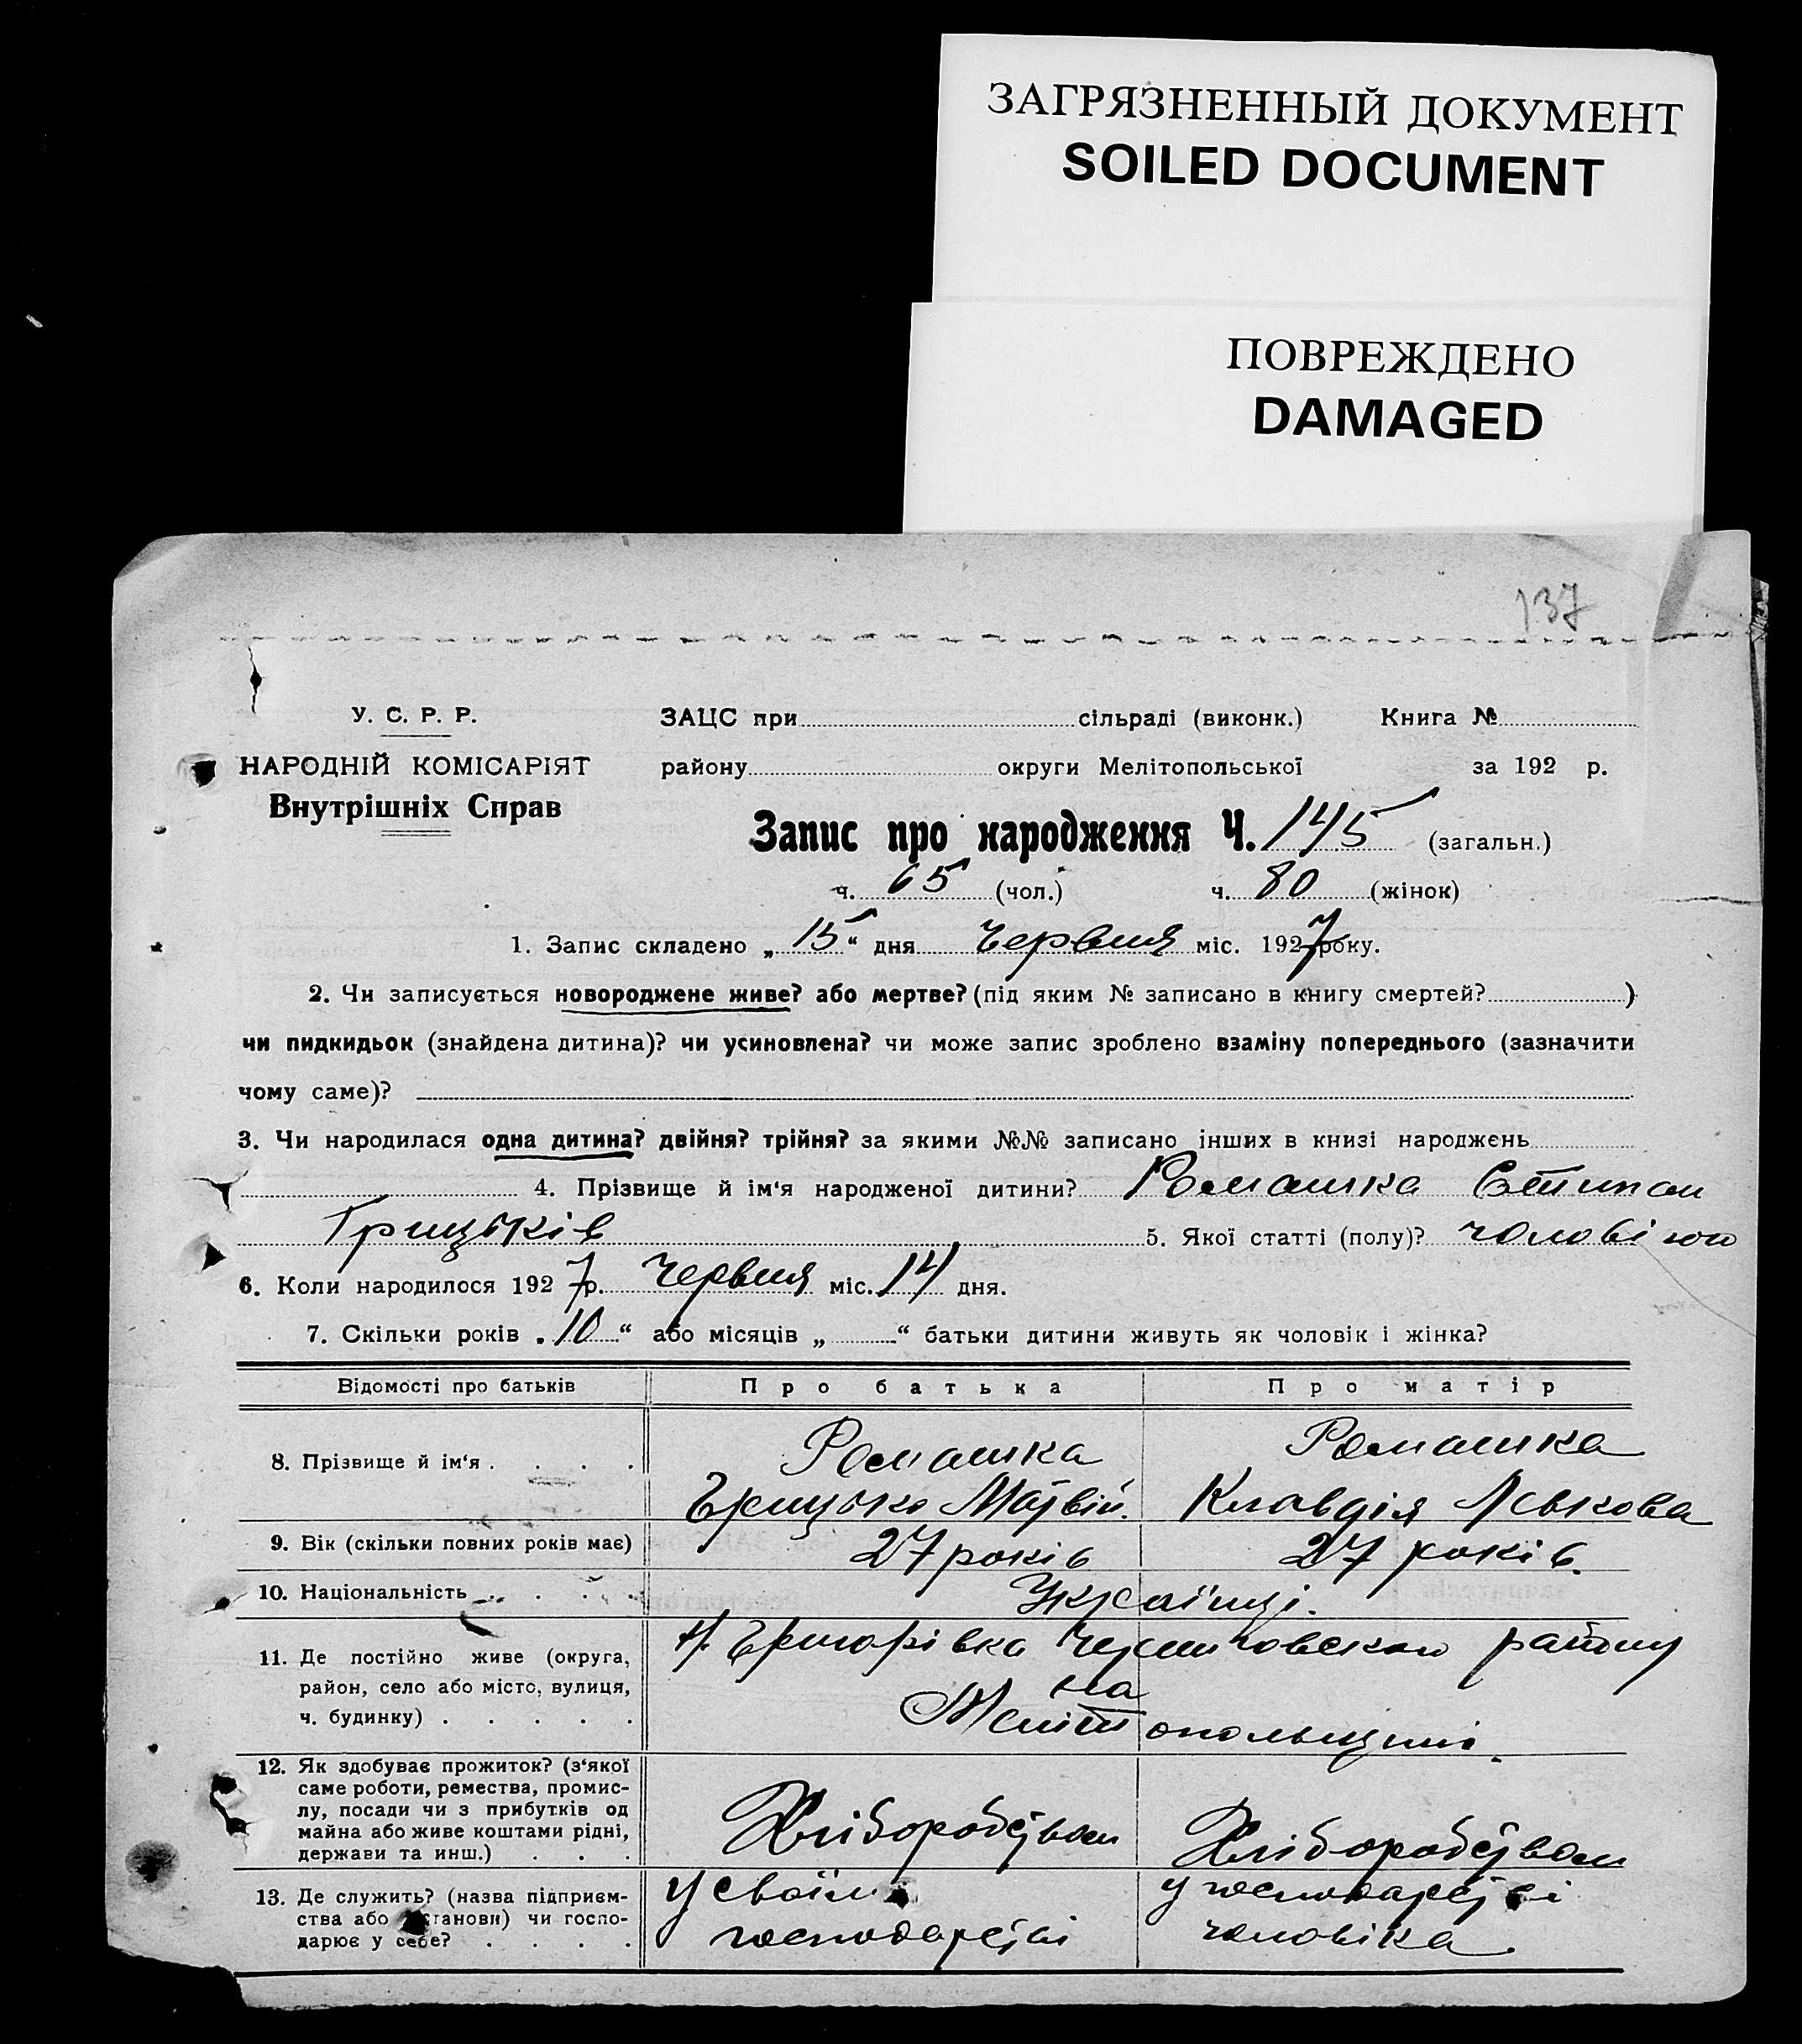 ЗАГРЯЗНЕННЫЙ ДОКУМЕНТ
SOILED DOCUMENT
ПОВРЕЖДЕНО
DAMAGED
137
У. С. Р. Р.
НАРОДНІЙ КОМІСАРІЯТ
Внутрішніх Справ
ЗАЦС при сільраді (виконк.) Книга №
району округи Мелітопольської за 192 р.
Запис про народження Ч. 145 (загальн.)
ч. 65 (чол.) ч. 80 (жінок)
1. Запис складено „15“ дня Червня міс. 1927 року.
2. Чи записується новороджене живе? або мертве? (під яким № записано в книгу смертей? )
чи пидкидьок (знайдена дитина)? чи усиновлена? чи може запис зроблено взаміну попереднього (зазначити
чому саме)?
3. Чи народилася одна дитина? двійня? трійня? за якими №№ записано інших в книзі народжень
4. Прізвище й ім‘я народженої дитини? Ромашка Степан
Грицьків 5. Якої статті (полу)? чоловічого
6. Коли народилося 1927 р. Червня міс. 14 дня.
7. Скільки років „10“ або місяців „ “ батьки дитини живуть як чоловік і жінка?
Відомості про батьків Про батька Про матір
8. Прізвище й ім‘я . . . . Ромашка Ромашка
Грицько Матвій. Клавдія Леькова
9. Вік (скільки повних років має) 27 років 27 років.
10. Національність . . . . Українці.
11. Де постійно живе (округа, район, село або місто, вулиця, ч. будинку) . . . . .
Григорівка Черниговского району
на
Мелітопольщині.
12. Як здобуває прожиток? (з‘якої
саме роботи, ремества, промис-
лу, посади чи з прибутків од
майна або живе коштами рідні,
держави та инш.) . . .
Хліборобством Хліборобством
13. Де служить? (назва підприєм-
ства або установи) чи госпо-
дарює у себе? . . . .
у своїм у господарстві
господарстві чоловіка.